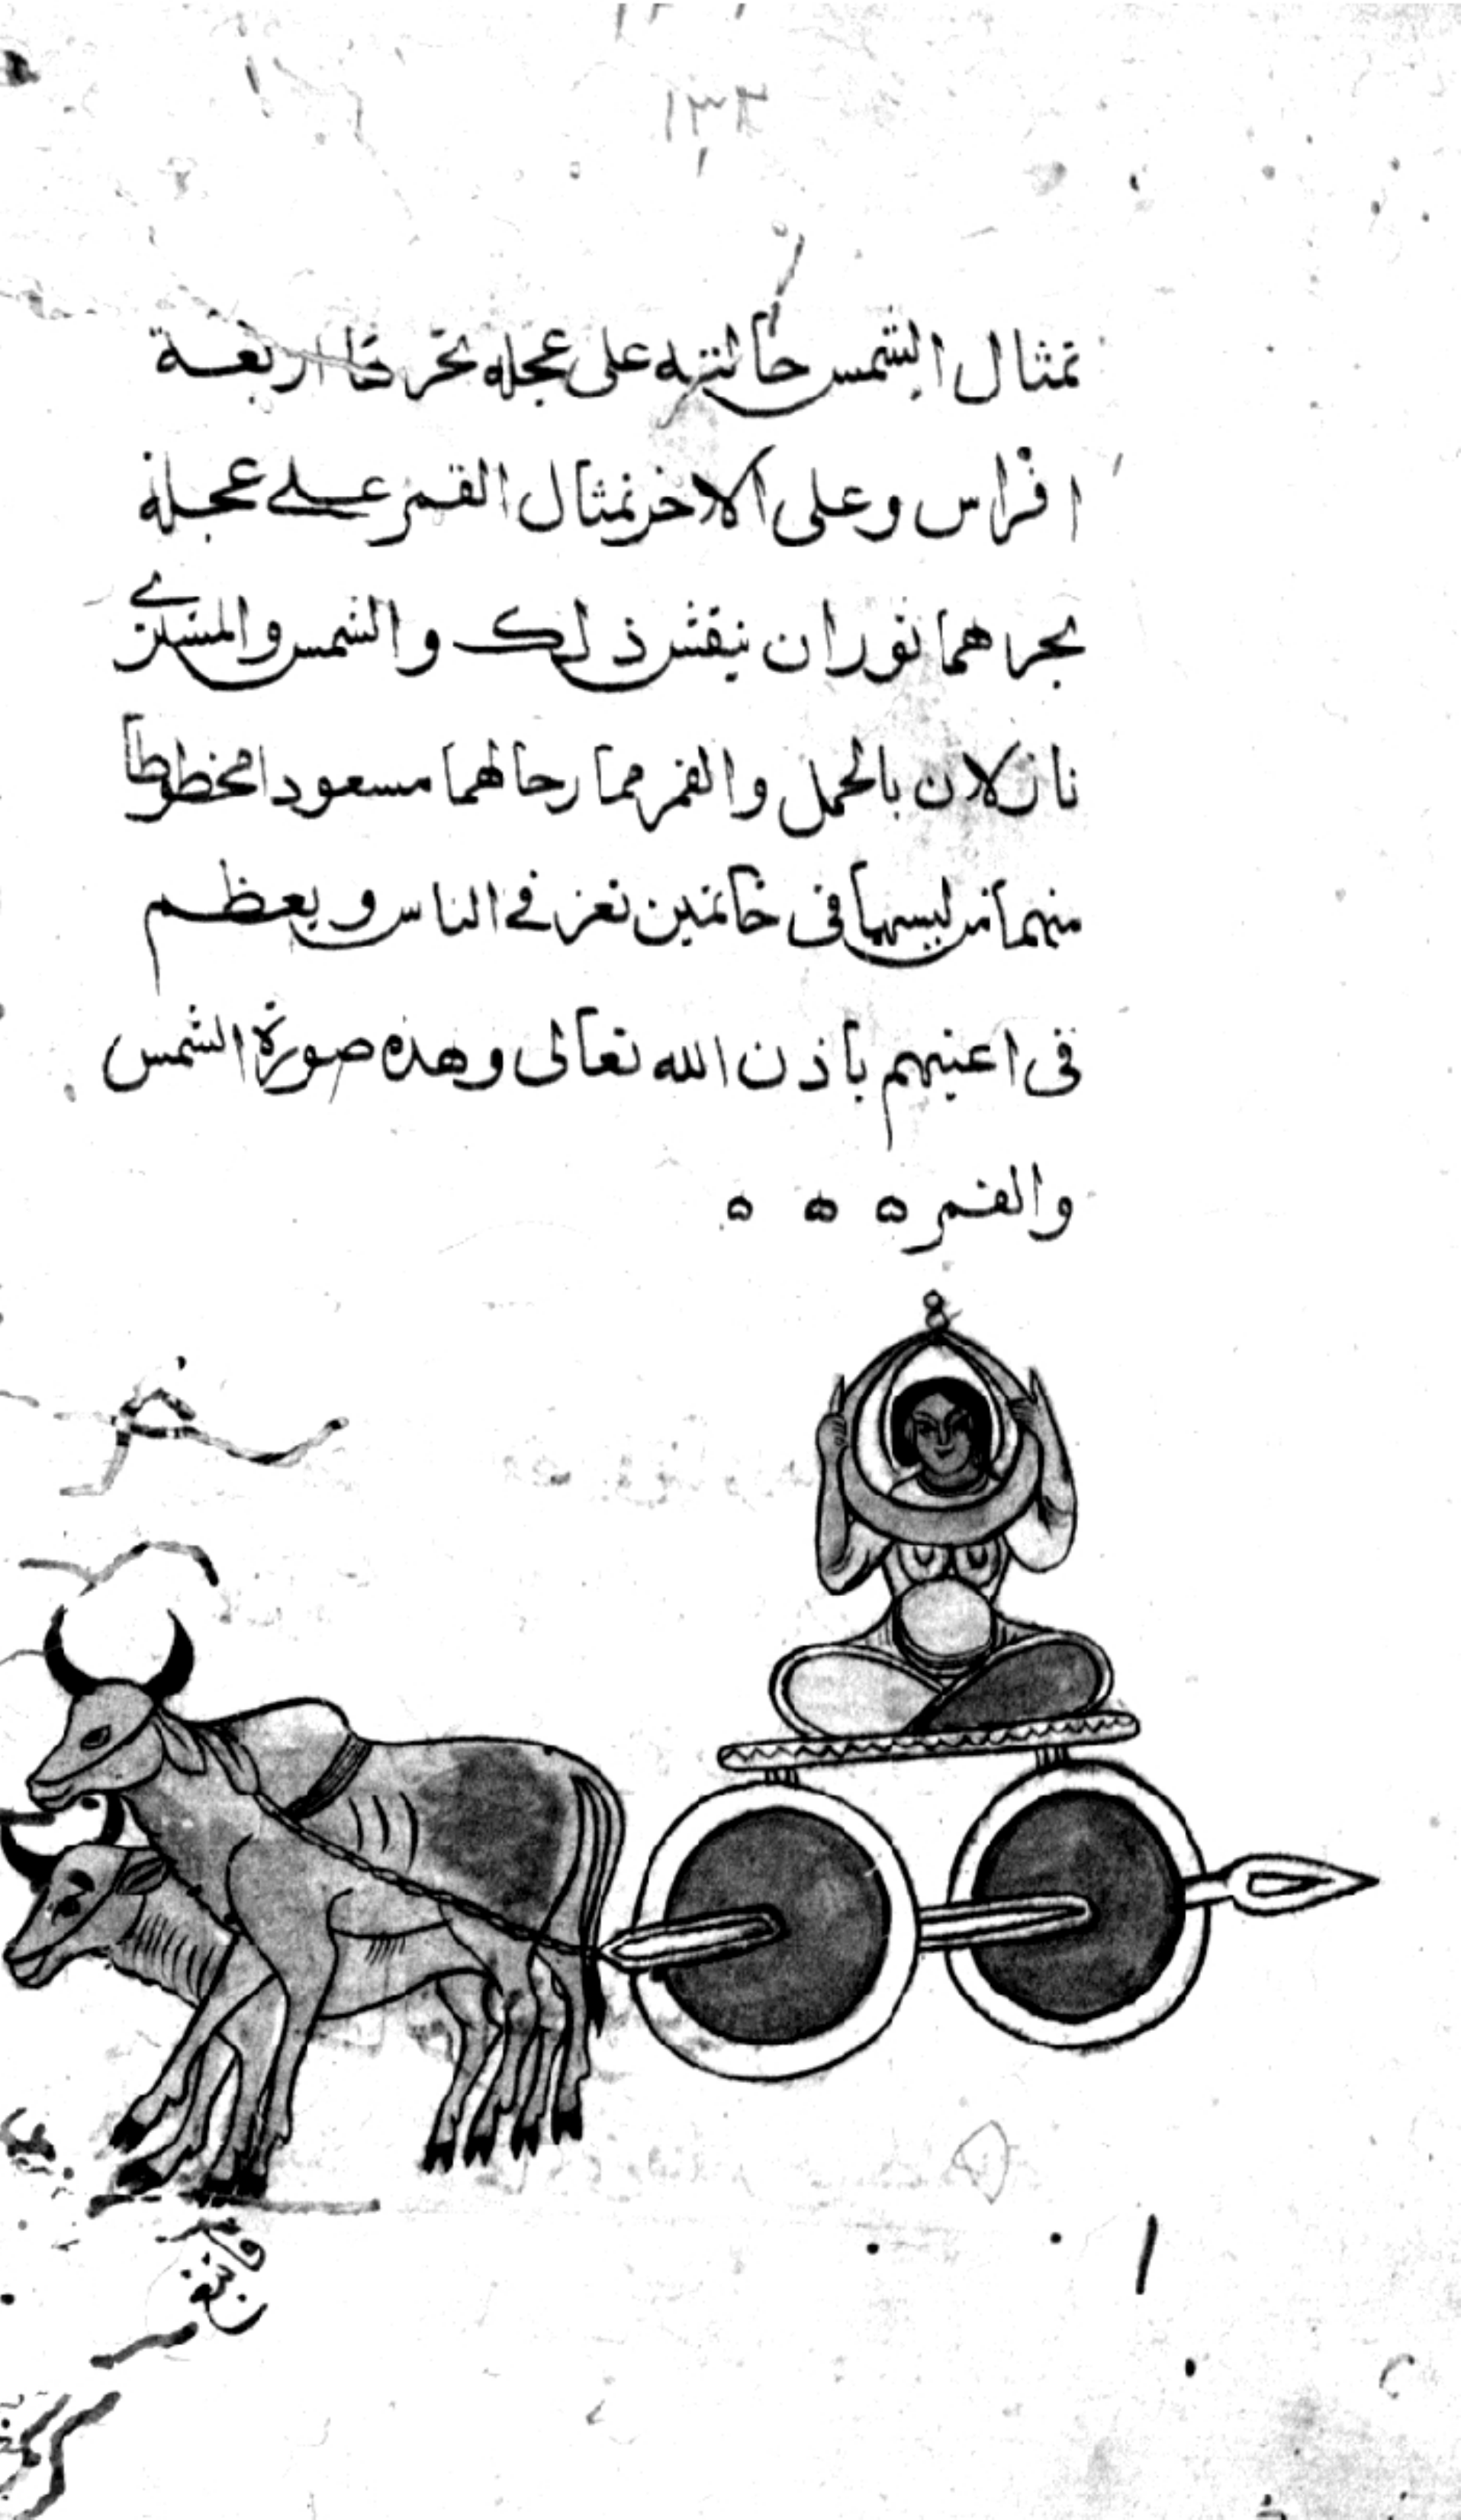 ١٣٢
تمثال الشمس جالسة على عجله تجرها اربعة
افراس وعلى الاخر تمثال القمر على عجلة
يجرهما ثوران ينقش ذلك والشمس والمشترى
نازلان بالحمل والقمر ممازجا لهما مسعودا مخططا
منهما ثم لبسهما فى خاتمين تعز فى الناس ويعظم
فى اعينهم باذن الله تعالى وهذه صورة الشمس
والقمر ه ه ه